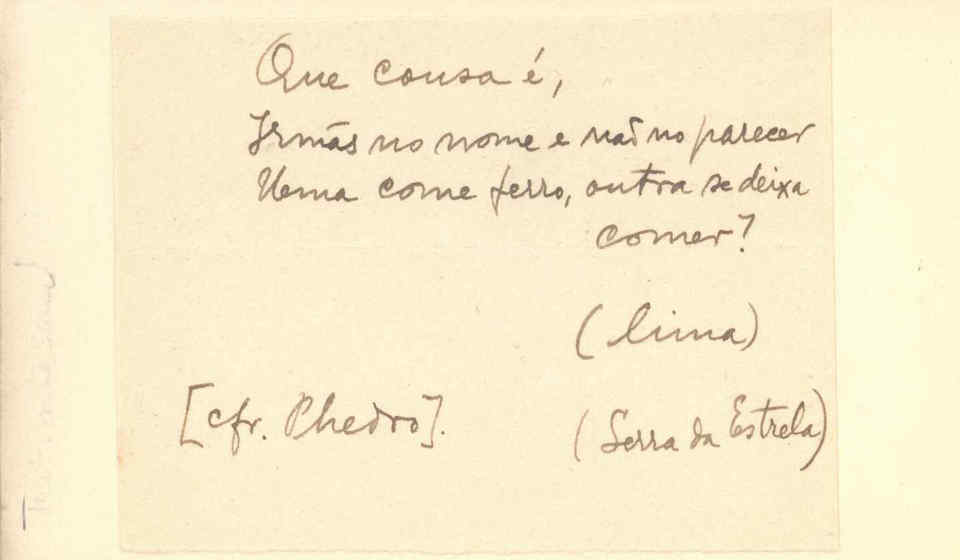 Que cousa é,
Irmãs no nome e não no parecer
Uma come ferro, outra se deixa
comer?
(lima)
[cfr. Phedro].
(Serra da Estrela)